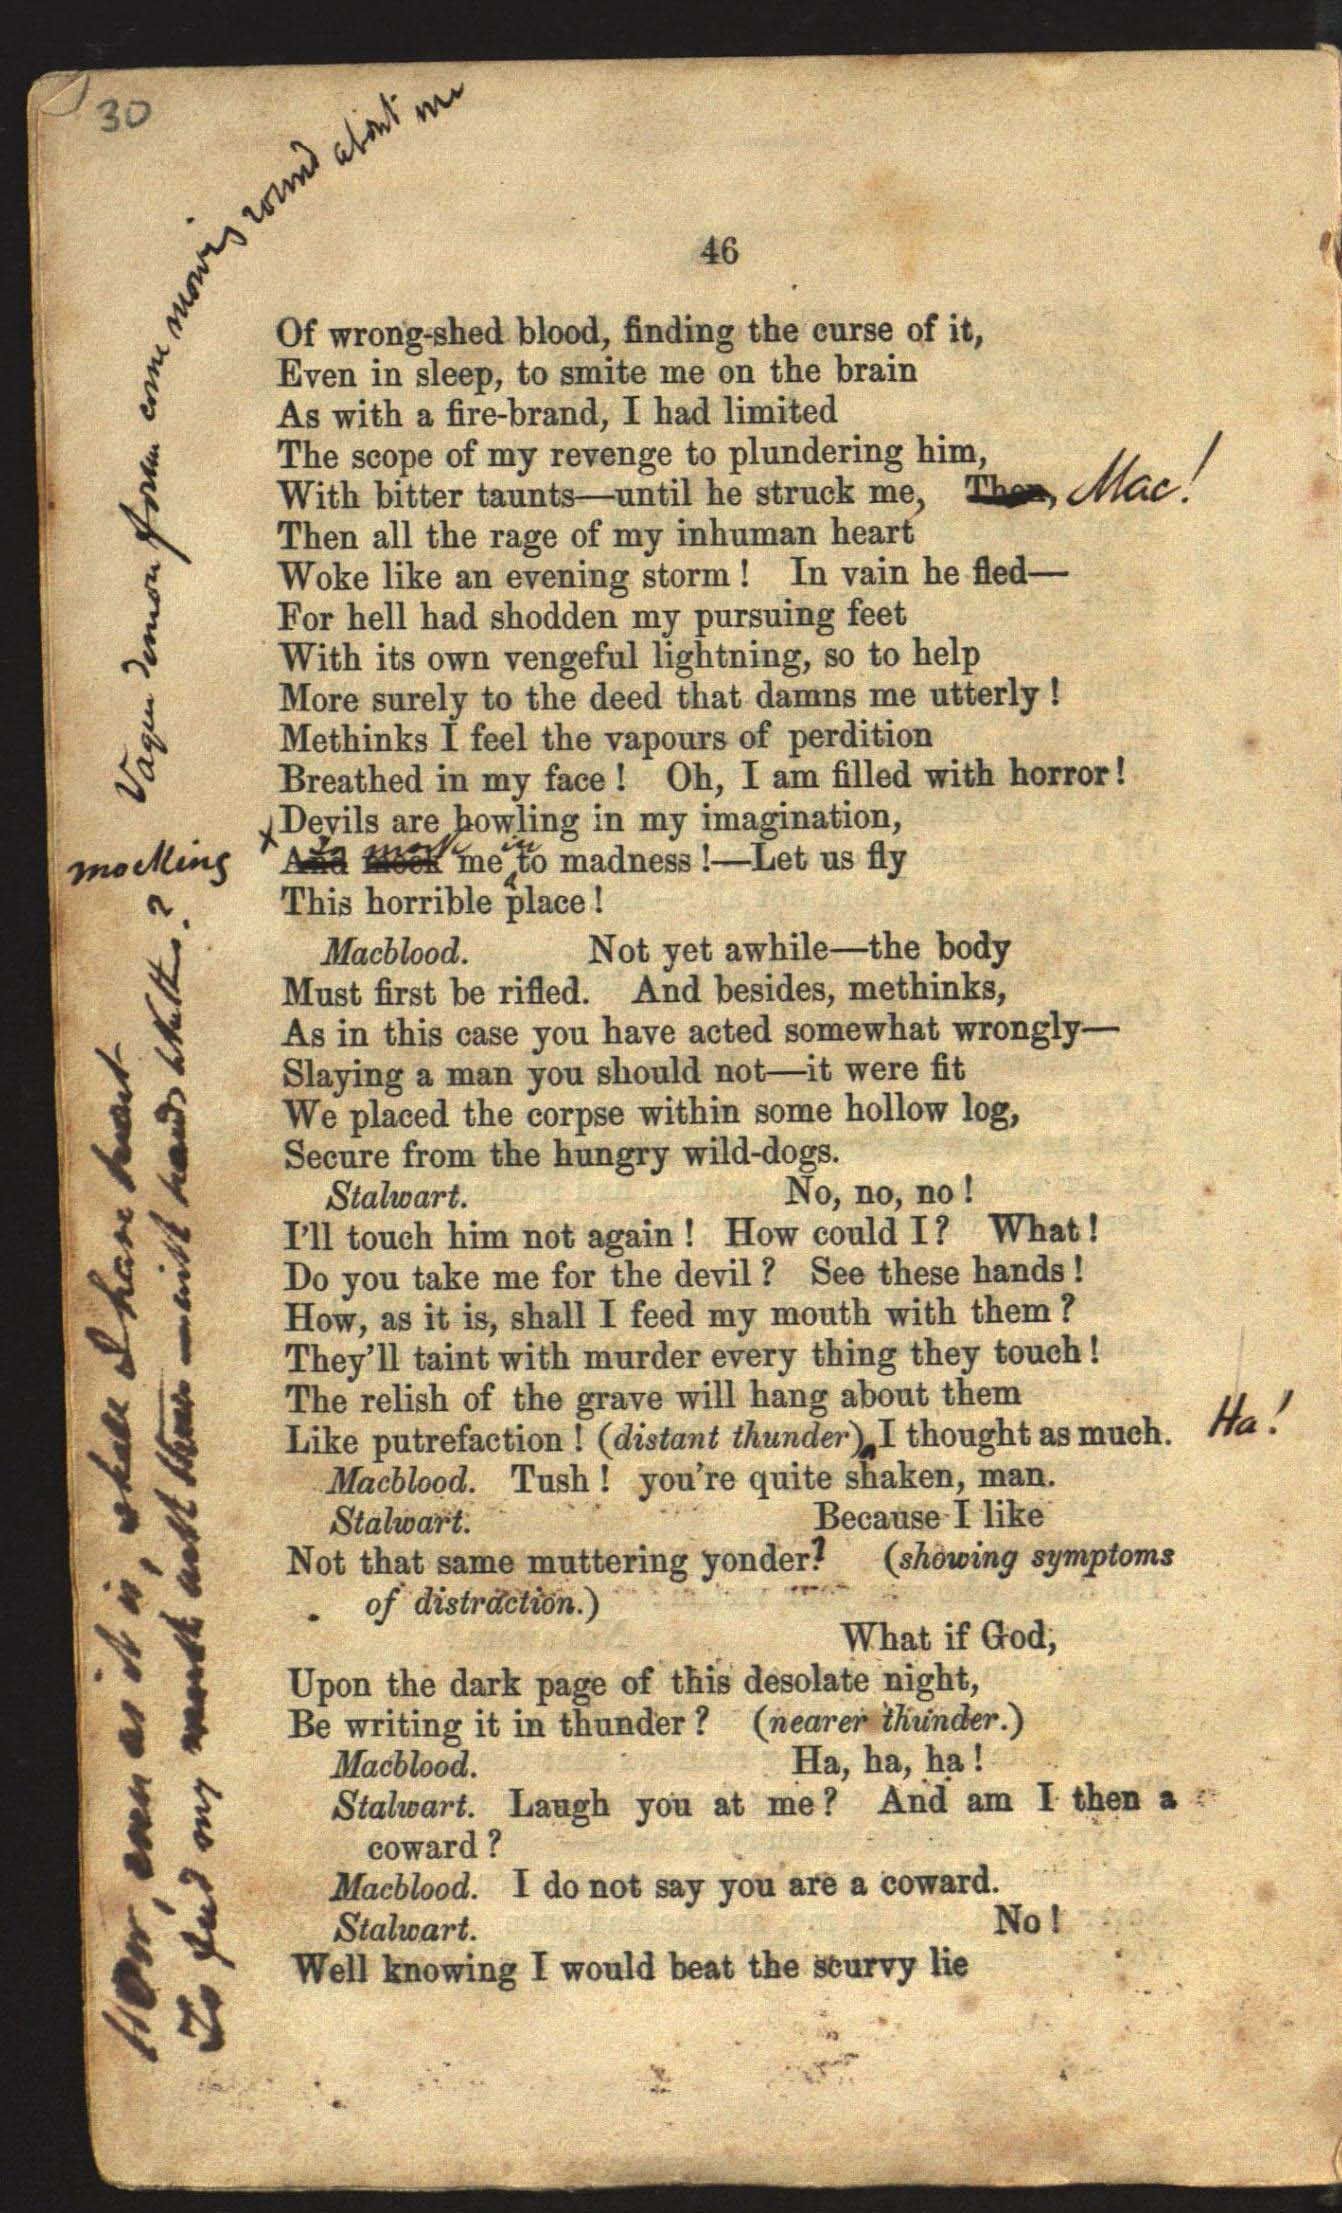 30
Vague demon forms come mowing round about me
46
Of wrong-shed blood, finding the curse of it,
Even in sleep, to smite me on the brain
As with a fire-brand, I had limited
The scope of my revenge to plundering him,
With bitter taunts—until he struck me, Then, Mac!
Then all the rage of my inhuman heart
Woke like an evening storm! In vain he fled—
For hell had shodden my pursuing feet
With its own vengeful lightning, so to help
More surely to the deed that damns me utterly!
Methinks I feel the vapours of perdition
Breathed in my face! Oh, I am filled with horror!
Devils are howling in my imagination,
mocking
To mock in
And mock me to madness!—Let us fly
This horrible place!
Macblood. Not yet awhile—the body
Must first be rifled. And besides, methinks,
As in this case you have acted somewhat wrongly—
Slaying a man you should not—it were fit
We placed the corpse within some hollow log,
Secure from the hungry wild-dogs.
Stalwart. No, no, no!
I'll touch him not again! How could I? What!
Do you take me for the devil? See these hands!
How, as it is, shall I feed my mouth with them?
They'll taint with murder every thing they touch!
The relish of the grave will hang about them
Like putrefaction! (distant thunder) I thought as much. Ha!
Macblood. Tush! you're quite shaken, man.
Stalwart. Because I like
Not that same muttering yonder? (showing symptoms
of distraction.)
What if God,
Upon the dark page of this desolate night,
Be writing it in thunder? (nearer thunder.)
Macblood. Ha, ha, ha!
Stalwart. Laugh you at me? And am I then a
coward?
Macblood. I do not say you are a coward.
Stalwart. No!
Well knowing I would beat the scurvy lie
How, even as it is, shall I have heart
To feed my mouth with hands like these?